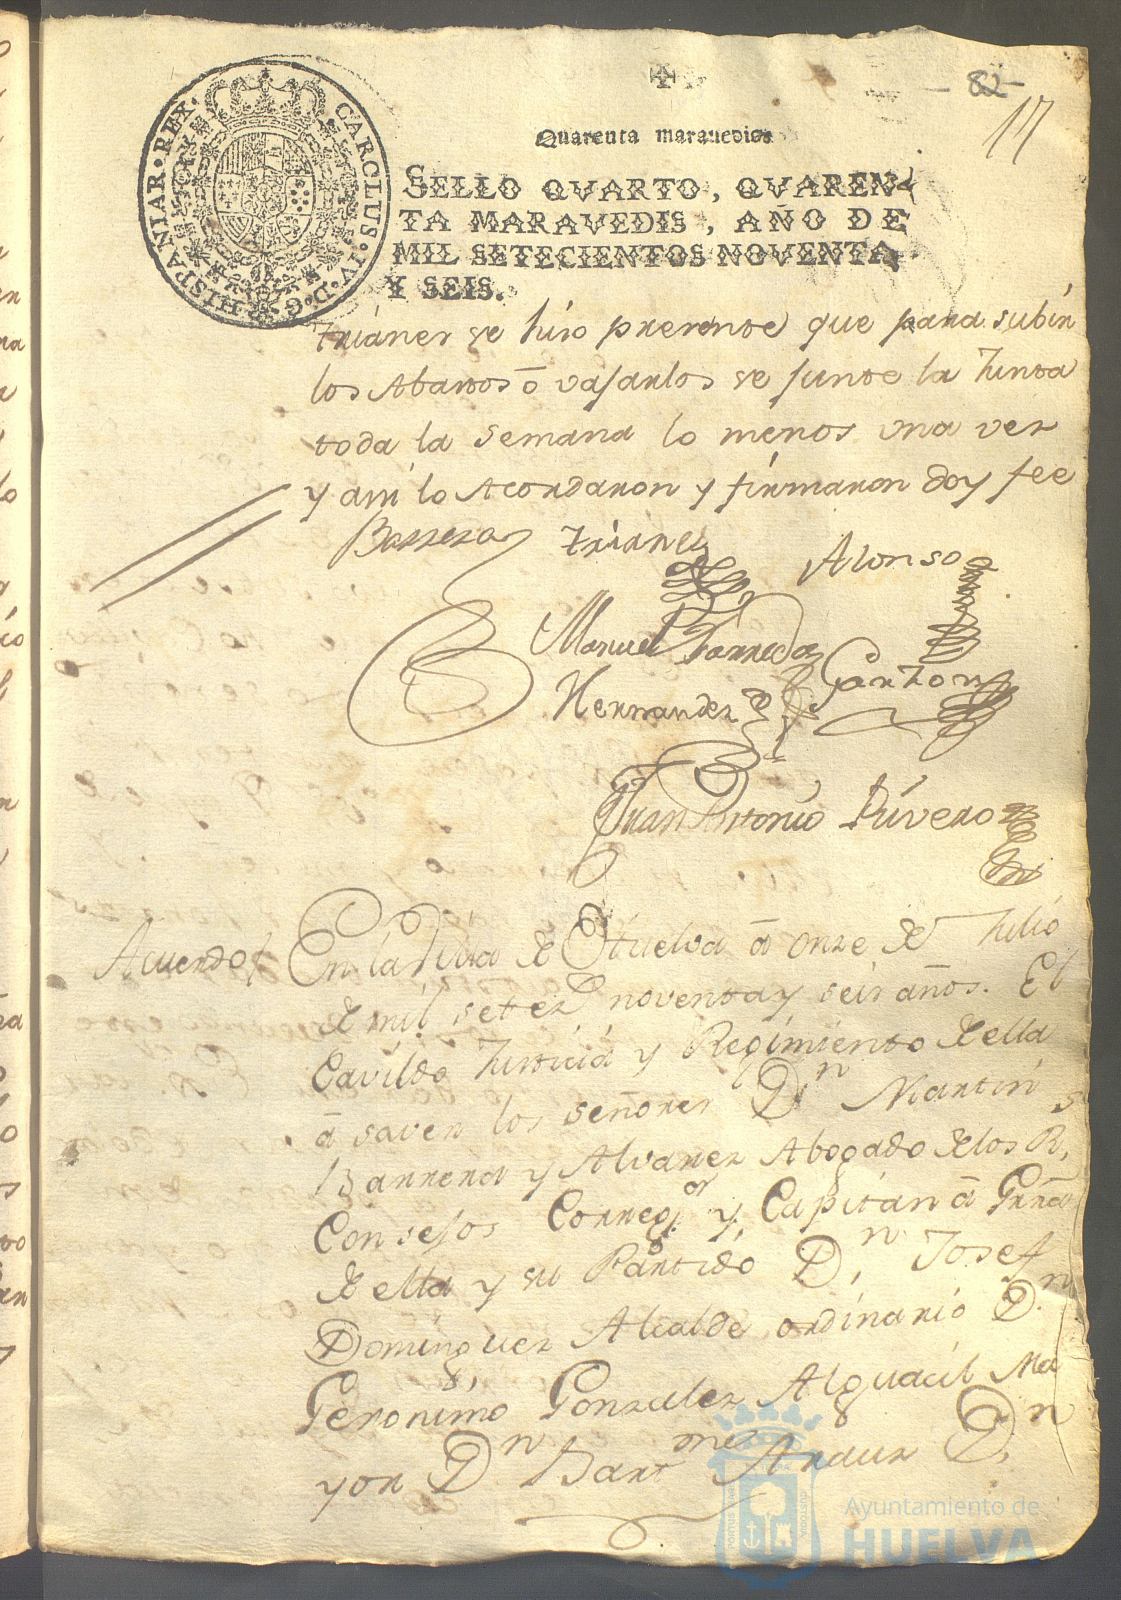 - 82 -
17
CAROLUS · IV · D · G · HISPANIAR · REX ·
Quarenta marauedis
SELLO QVARTO, QVAREN-
TA MARAVEDIS, AÑO DE
MIL SETECIENTOS NOVENTA
Y SEIS.
trianes se hiso presente que para subir
los Abastos ō vajarlos se junte la Junta
toda la semana lo menos una ves
y asi lo Acordaron y firmaron doy fee
Barrera Trianes Alonso
Manuel Garzon
Hernandez
Juan Antonio Rivero
Acuerdo En la Villa de Huelva ā onze de Julio
de mil setez noventa y seis años. El
Cavildo Justicia y Regimiento de ella
ā saver los señores Dn Martin
Barrera y Alvarez Abogado de los Rs
Consejos Corregor y Capitan ā Grrā
de ella y su Partido, Dn Josef
Dominguez Alcalde ordinario Dn
Geronimo Gonzalez Alguacil Ma
yor Dn Bartme Arauz Dn
Ayuntamiento de
HUELVA